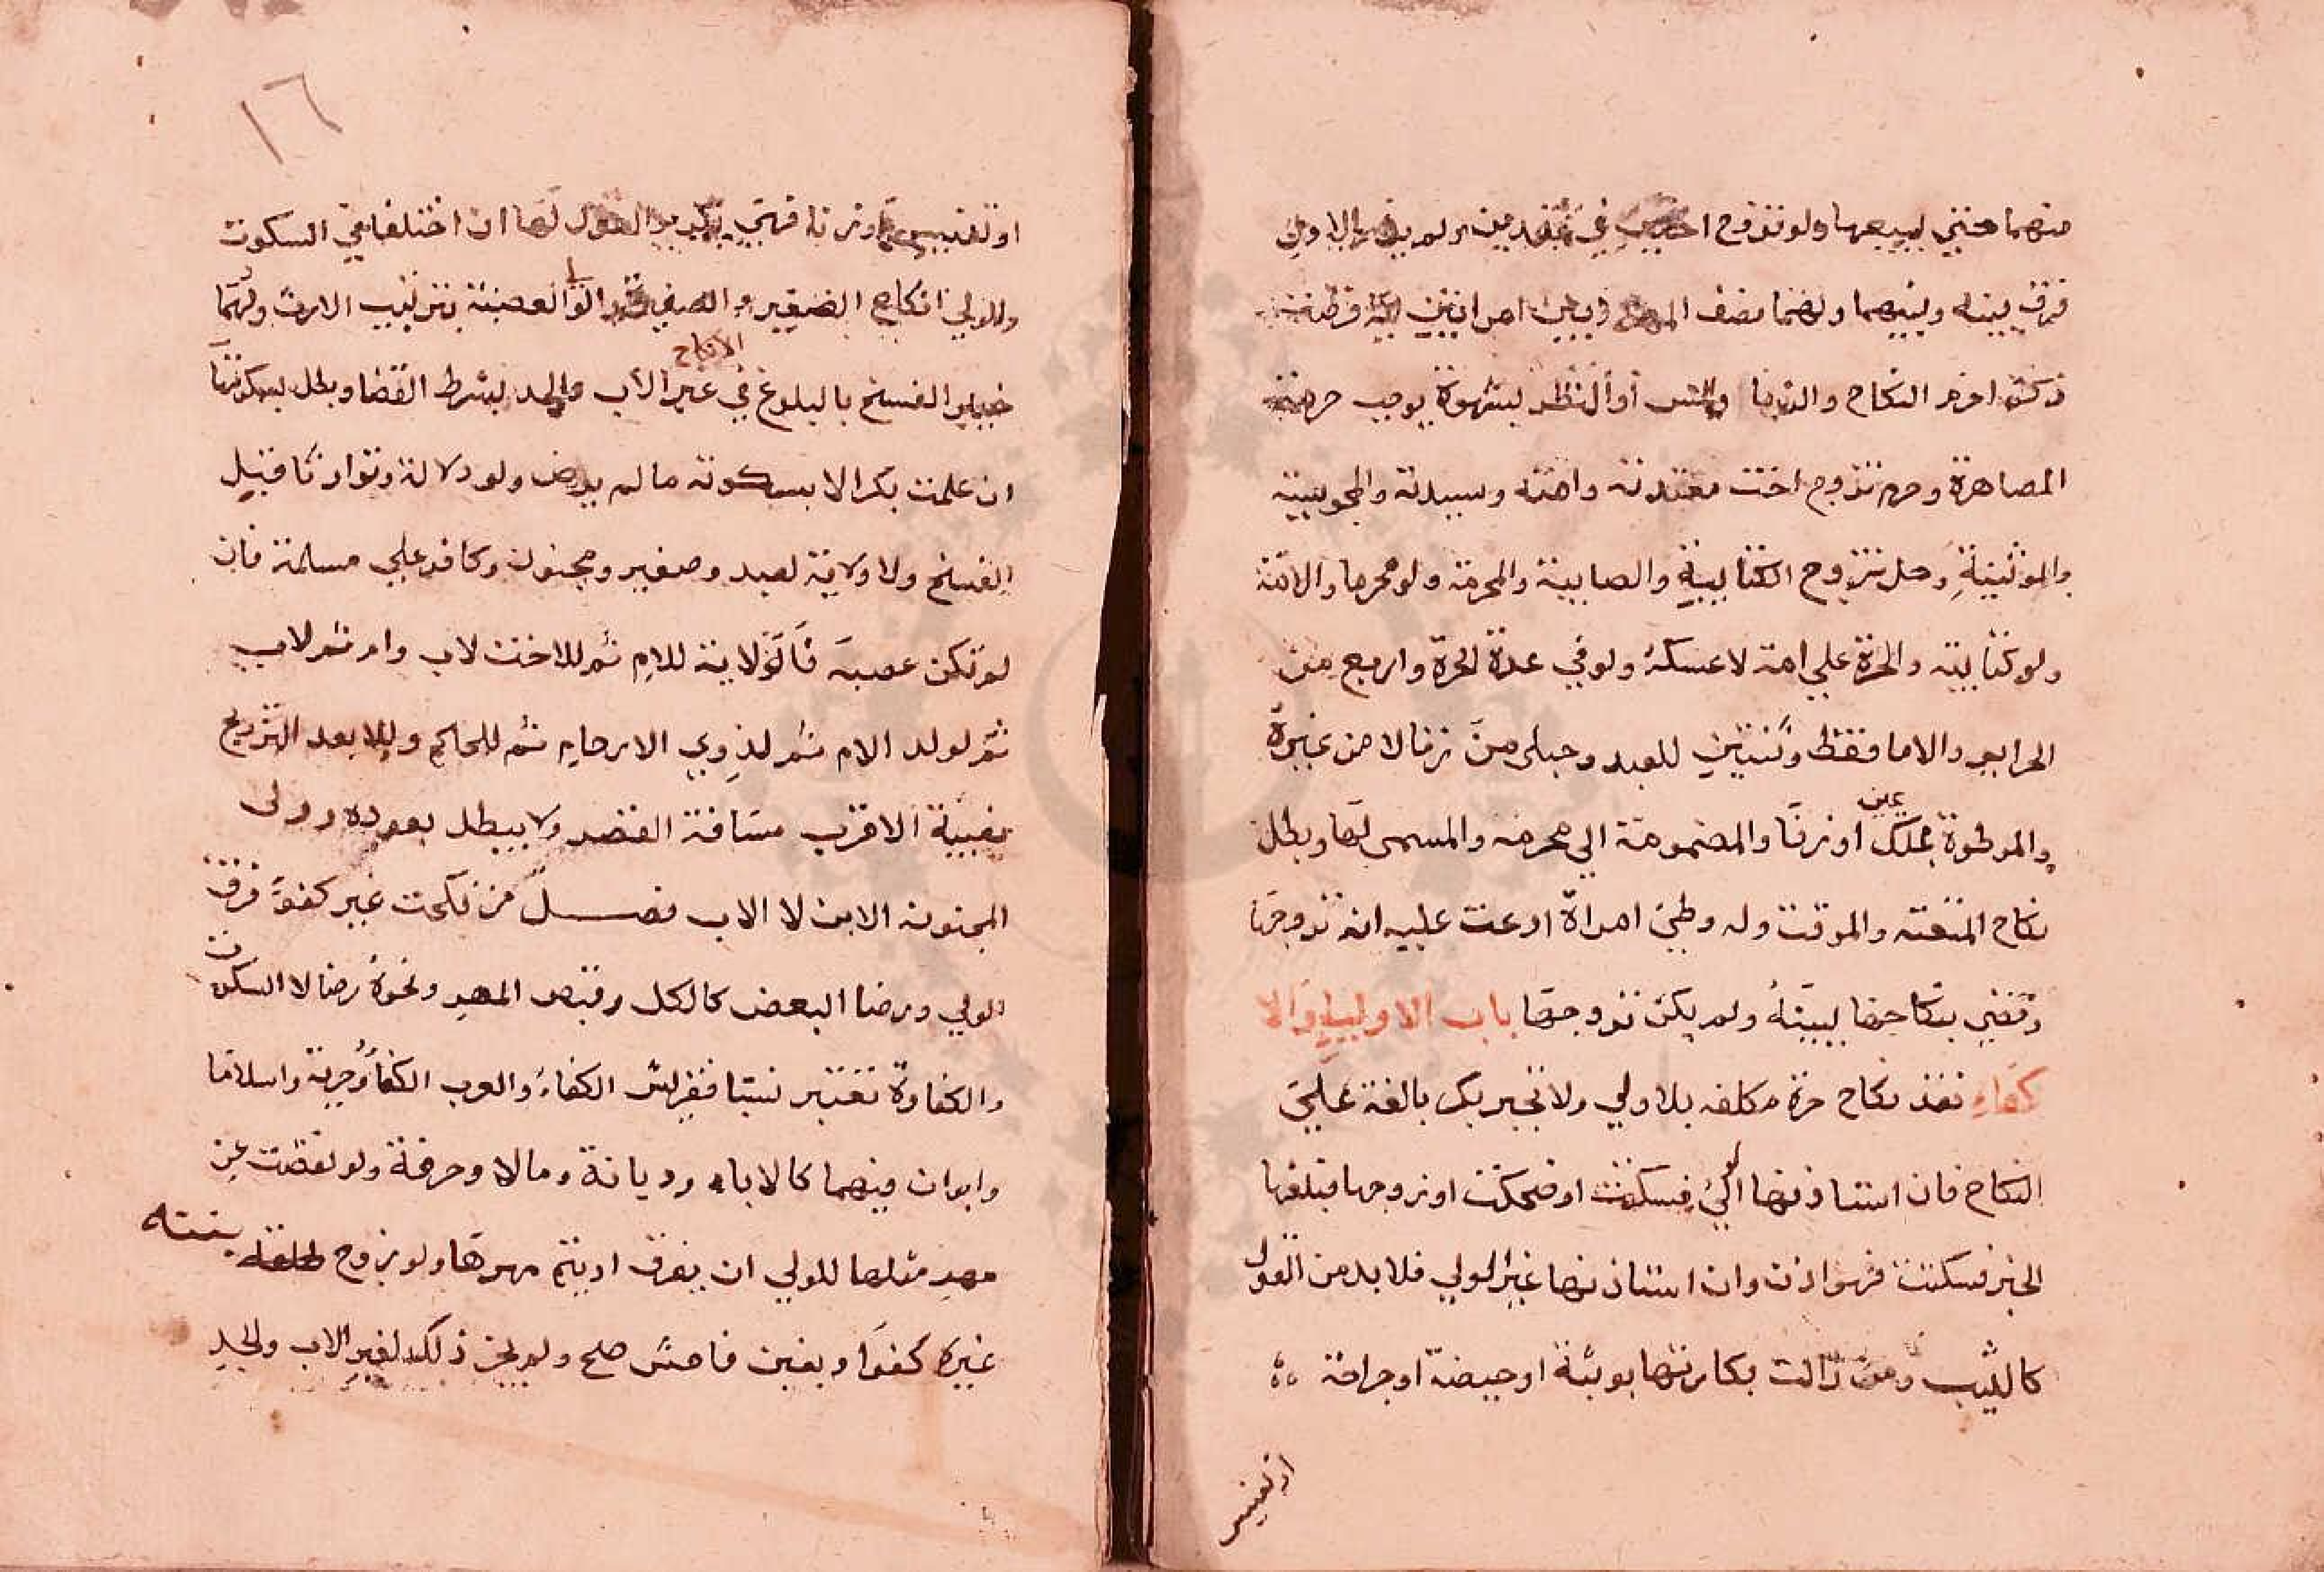 منهما حتي يبيعها ولو تزوج اختين في عقدين ولم يدر الاول
فرق بينه وبينهما ولهما نصف المهر وبين امراتين اية فرضت
ذكرا حرم النكاح والزنا والمس او النظر بشهوة يوجب حرمة
المصاهرة وحرم تزوج اخت معتدته وامته وسيدته والمجوسية
والوثنية وحل تزوج الكتابية والصابية والمحرمة ولو محرما والامة
ولو كتابية والحرة علي امة لا عكسه ولو في عدة الحرة واربع من
الحراير والاما فقط وثنتين للعبد وحبلى من زنا لا من غيره
والموطوة بملك يمين او زنا والمضمومة الي محرمه والمسمى لها وبطل
نكاح المتعة والموقت وله وطئ امراة ادعت عليه انه تزوجها
وقضي بنكاحها ببينة ولم يكن تزوجها باب الاوليا والا
كفاء نفذ نكاح حرة مكلفه بلا ولي ولا تجبر بكر بالغة علي
النكاح فان استاذنها الولي فسكتت او ضحكت او زوجها فبلغها
الخبر فسكتت فهو اذن وان استاذنها غير الولي فلا بد من القول
كالثيب ومن زالت بكارتها بوثبة او حيضة او جراحة
او تعنيس
١٦
او تعنيس او زنا فهي بكر والقول لها ان اختلفا في السكوت
وللولي انكاح الصغير والصغيرة والولي العصبة بترتيب الارث ولهما
خيار الفسخ بالبلوغ في غير الاب والجد بشرط القضا وبطل بسكوتها
الانكاح
ان علمت بكرا لا بسكوته ما لم يرض ولو دلالة وتوارثا قبل
الفسخ ولا ولاية لعبد وصغير ومجنون وكافر علي مسلمة فان
لم تكن عصبة فالولاية للام ثم للاخت لاب وام ثم لاب
ثم لولد الام ثم لذوي الارحام ثم للحاكم وللابعد التزويج
بغيبة الاقرب مسافة القصر ولا يبطل بعوده وولى
المجنونة الابن لا الاب فصل من نكحت غير كفو فرق
الولي ورضا البعض كالكل وقبض المهر ونحوه رضا لا السكوت
والكفاءة تعتبر نسبا فقريش اكفاء والعرب اكفاء وحرية واسلاما
وابوان فيهما كالاباء وديانة ومالا وحرفة ولو نقصت عن
مهر مثلها للولي ان يفرق او يتم مهرها ولو زوج طفله بنته
غير كفو او بغبن فاحش صح ولم يجز ذلك لغير الاب والجد